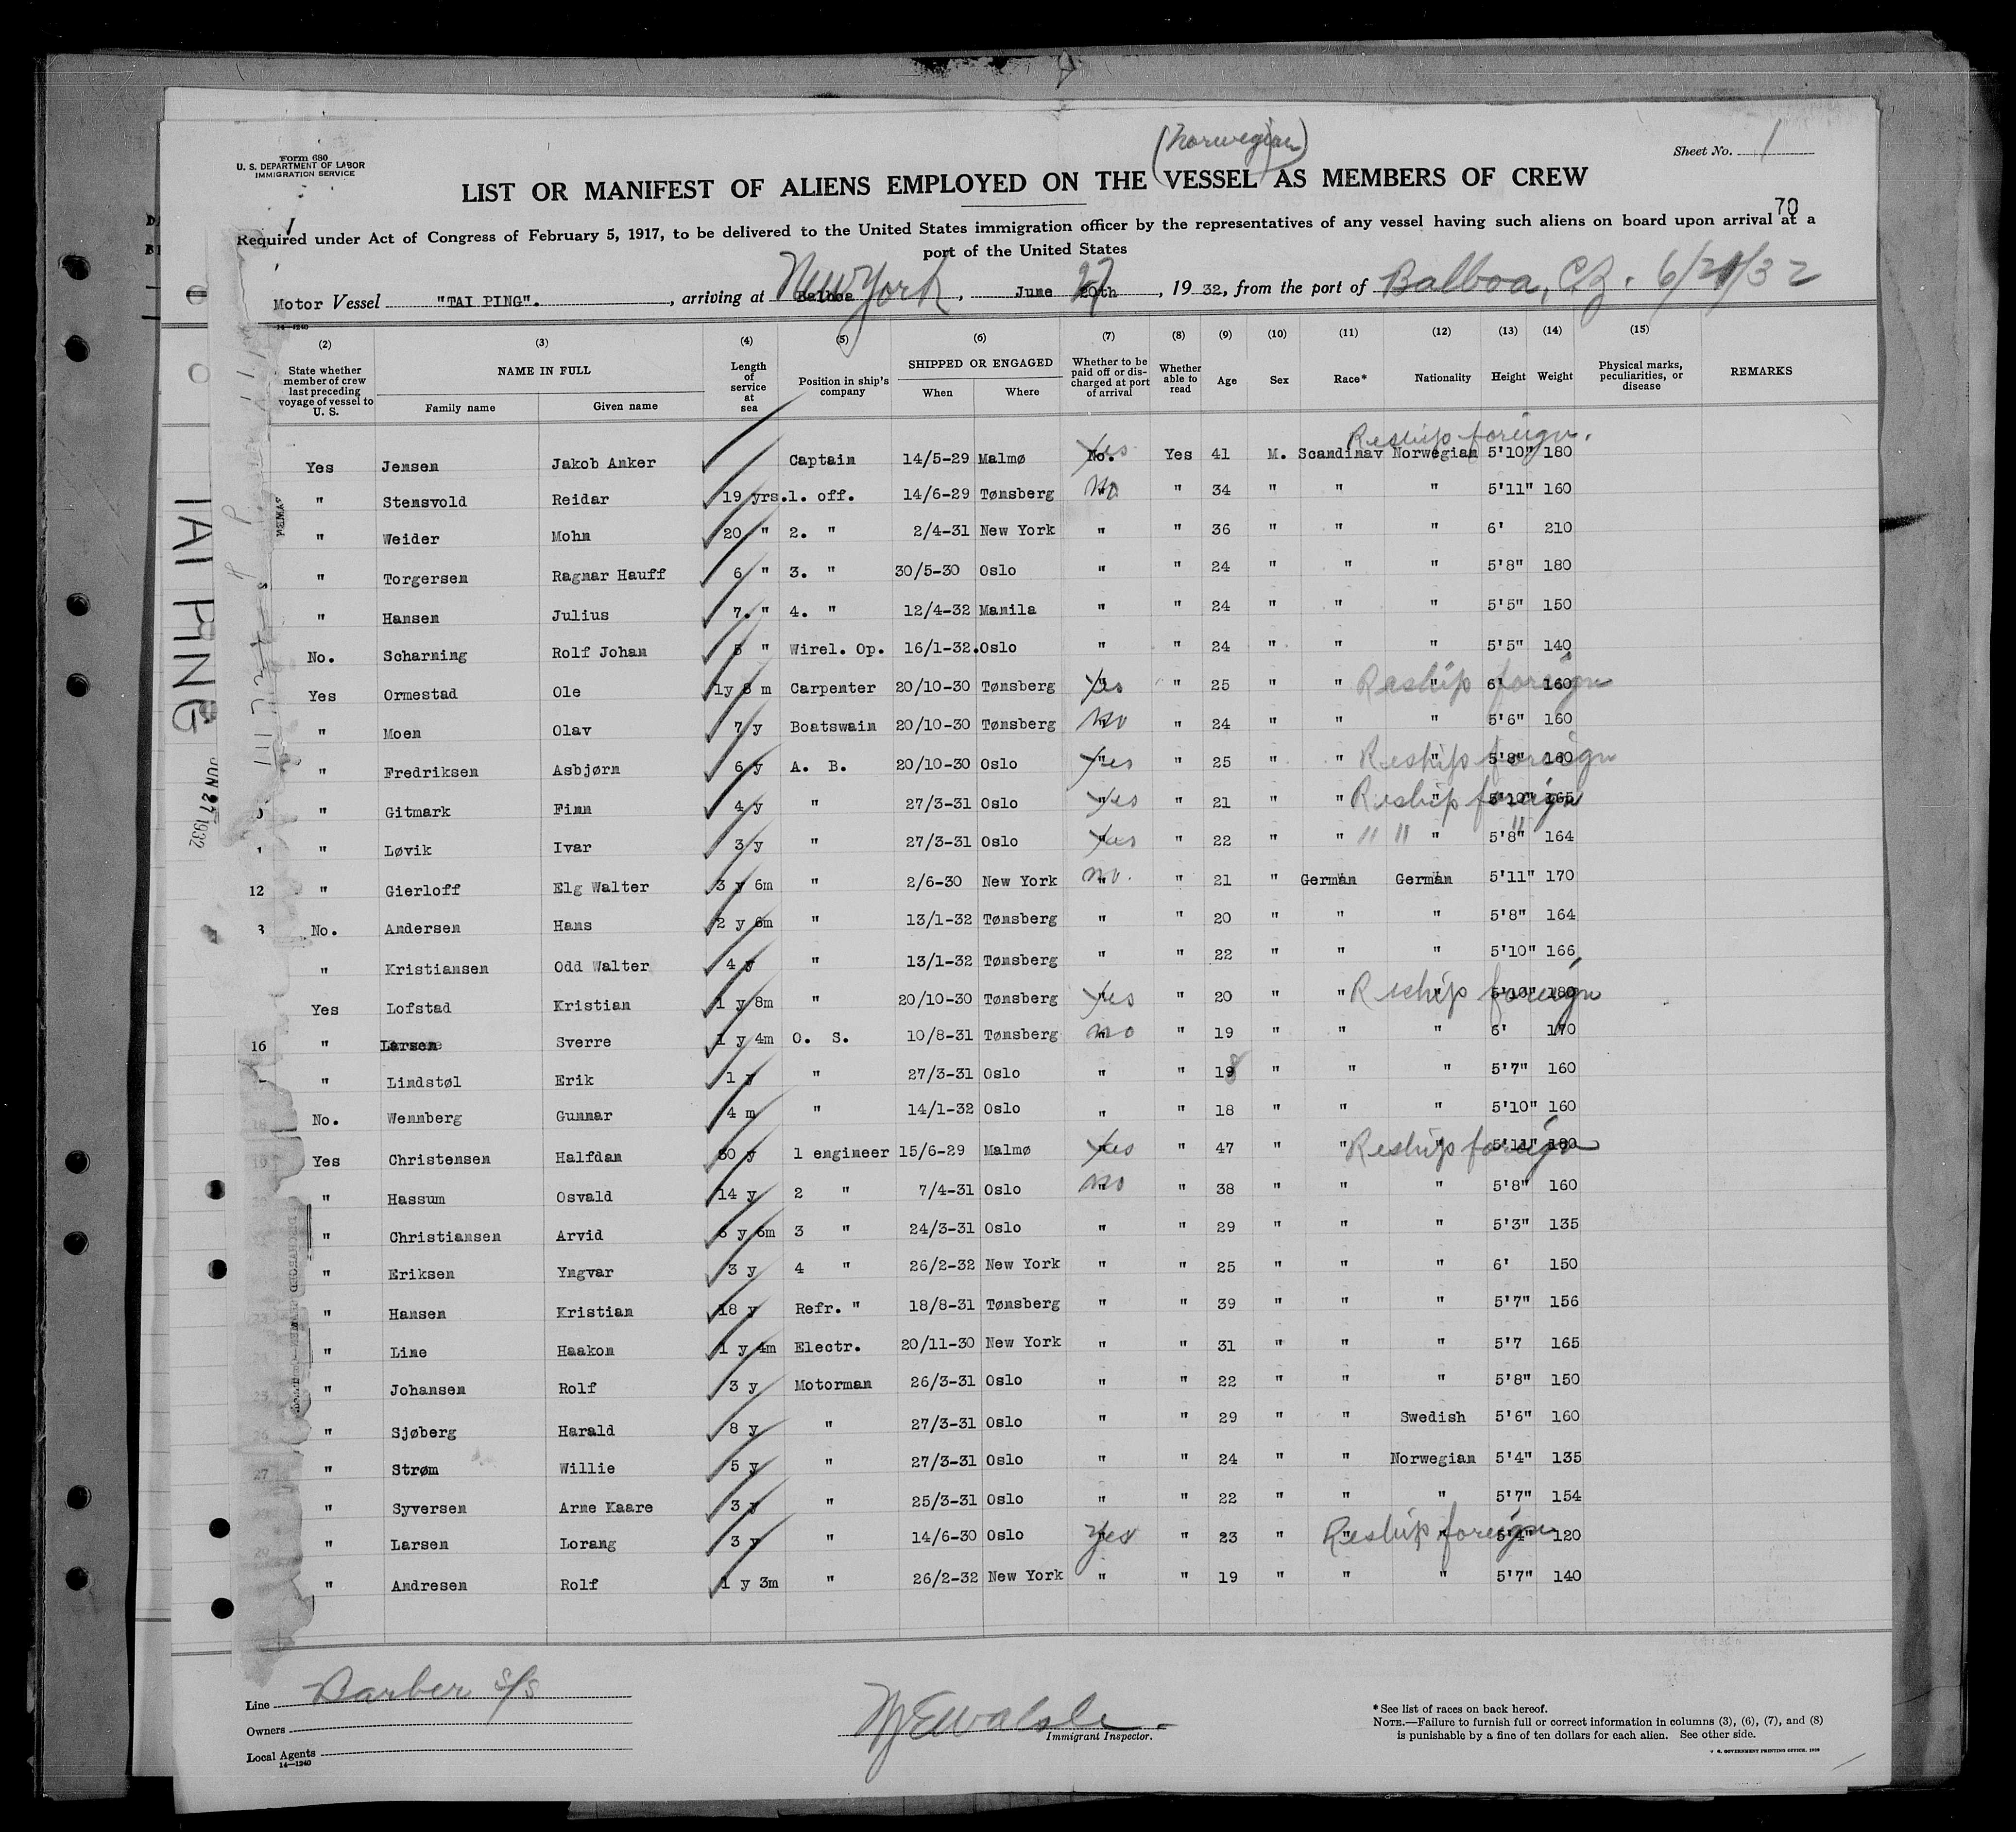 Form 680
U. S. DEPARTMENT OF LABOR
IMMIGRATION SERVICE
Sheet No. 1
(Norwegian)
LIST OR MANIFEST OF ALIENS EMPLOYED ON THE VESSEL AS MEMBERS OF CREW
70
Required under Act of Congress of February 5, 1917, to be delivered to the United States immigration officer by the representatives of any vessel having such aliens on board upon arrival at a
port of the United States
Motor Vessel "TAI PING". , arriving at Balboa New York , June 20th 27 , 19 32, from the port of Balboa, C.Z. 6/21/32
14—1240
(2) (3) (4) (5) (6) (7) (8) (9) (10) (11) (12) (13) (14) (15)
State whether member of crew last preceding voyage of vessel to U. S. NAME IN FULL Family name Given name Length of service at sea Position in ship's company SHIPPED OR ENGAGED When Where Whether to be paid off or discharged at port of arrival Whether able to read Age Sex Race* Nationality Height Weight Physical marks, peculiarities, or disease REMARKS
Reship foreign.
Yes Jensen Jakob Anker Captain 14/5-29 Malmø No. Yes Yes 41 M. Scandinav Norwegian 5'10" 180
" Stensvold Reidar 19 yrs. 1. off. 14/6-29 Tønsberg " No " 34 " " " 5'11" 160
" Weider Mohn 20 " 2. " 2/4-31 New York " " 36 " " " 6' 210
" Torgersen Ragnar Hauff 6 " 3. " 30/5-30 Oslo " " 24 " " " 5'8" 180
" Hansen Julius 7. " 4. " 12/4-32 Manila " " 24 " " " 5'5" 150
No. Scharning Rolf Johan 5 " Wirel. Op. 16/1-32. Oslo " " 24 " " " 5'5" 140
Yes Ormestad Ole 1y 8 m Carpenter 20/10-30 Tønsberg " Yes " 25 " " " 6' 160 Reship foreign
" Moen Olav 7 y Boatswain 20/10-30 Tønsberg " No " 24 " " " 5'6" 160
" Fredriksen Asbjørn 6 y A. B. 20/10-30 Oslo " Yes " 25 " " " 5'8" 160 Reship foreign
" Gitmark Finn 4 y " 27/3-31 Oslo " Yes " 21 " " " 5'10" 165 Reship foreign
" Løvik Ivar 3 y " 27/3-31 Oslo " Yes " 22 " " " 5'8" 164 " " "
12 " Gierloff Elg Walter 3 y 6m " 2/6-30 New York " No. " 21 " German German 5'11" 170
3 No. Andersen Hans 2 y 6m " 13/1-32 Tønsberg " " 20 " " " 5'8" 164
" Kristiansen Odd Walter 4 y " 13/1-32 Tønsberg " " 22 " " " 5'10" 166
Yes Lofstad Kristian 1 y 8m " 20/10-30 Tønsberg " Yes " 20 " " " 5'10" 180 Reship foreign
16 " Larsen Sverre 1 y 4m O. S. 10/8-31 Tønsberg " No " 19 " " " 6' 170
" Lindstøl Erik 1 y " 27/3-31 Oslo " " 19 8 " " " 5'7" 160
18 No. Wennberg Gunnar 4 m " 14/1-32 Oslo " " 18 " " " 5'10" 160
19 Yes Christensen Halfdan 30 y 1 engineer 15/6-29 Malmø " Yes " 47 " " " 5'11" 180 Reship foreign
" Hassum Osvald 14 y 2 " 7/4-31 Oslo " No " 38 " " " 5'8" 160
" Christiansen Arvid 6 y 6m 3 " 24/3-31 Oslo " " 29 " " " 5'3" 135
" Eriksen Yngvar 3 y 4 " 26/2-32 New York " " 25 " " " 6' 150
23 " Hansen Kristian 18 y Refr. " 18/8-31 Tønsberg " " 39 " " " 5'7" 156
" Line Haakon 1 y 4m Electr. 20/11-30 New York " " 31 " " " 5'7 165
25 " Johansen Rolf 3 y Motorman 26/3-31 Oslo " " 22 " " " 5'8" 150
26 " Sjøberg Harald 8 y " 27/3-31 Oslo " " 29 " " Swedish 5'6" 160
27 " Strøm Willie 5 y " 27/3-31 Oslo " " 24 " " Norwegian 5'4" 135
" Syversen Arne Kaare 3 y " 25/3-31 Oslo " " 22 " " " 5'7" 154
29 " Larsen Lorang 3 y " 14/6-30 Oslo " Yes " 23 " " " 5'4" 120 Reship foreign
" Andresen Rolf 1 y 3m " 26/2-32 New York " " 19 " " " 5'7" 140
TAI PING
JUN 27 1932
Line Barber S/S
Owners
Local Agents
14—1240
W E Walsh
Immigrant Inspector.
* See list of races on back hereof.
NOTE.—Failure to furnish full or correct information in columns (3), (6), (7), and (8)
is punishable by a fine of ten dollars for each alien. See other side.
GOVERNMENT PRINTING OFFICE